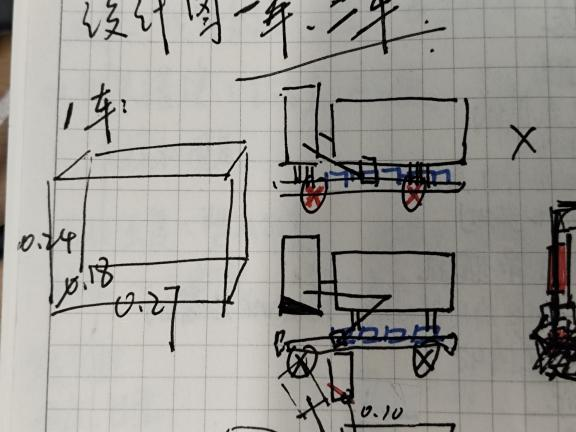 设计图一车.二车.
1车:
0.24
0.18
0.27
X
0.10